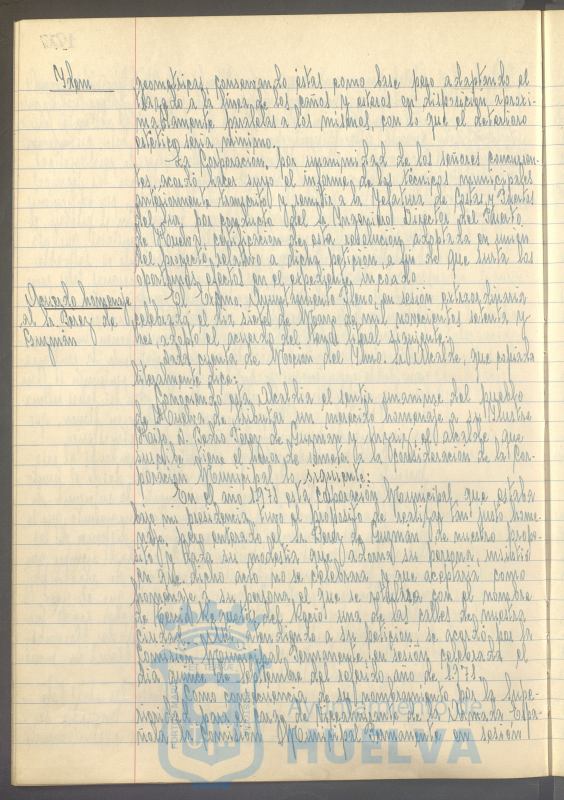 Idem
geometricas, conservando estas como base pero adaptando el
trazado a la linea de los caños y esteros en disposición aproxi-
madamente paralelas a los mismos, con lo que el deterioro
estético seria minimo.
La Corporación, por unanimidad de los señores concurren-
tes, acordó hacer suyo el informe de los técnicos municipales
anteriormente transcrito y remitir a la Jefatura de Costas y Puertos
del Sur, por conducto del Sr. Ingeniero Director del Puerto
de Huelva, certificación de esta resolución adoptada en unión
del proyecto relativo a dicha petición, a fin de que surta los
oportunos efectos en el expediente incoado.
Acuerdo homenaje
al Sr. Perez de
Guzmán
El Excmo. Ayuntamiento Pleno, en sesión extraordinaria
celebrada el dia siete de Marzo de mil novecientos setenta y
tres adoptó el acuerdo del tenor literal siguiente:
Dada cuenta de Moción del Ilmo. Sr. Alcalde, que copiada
literalmente dice:
Conociendo esta Alcaldia el sentir unanime del pueblo
de Huelva de tributar un merecido homenaje a su Ilustre
D. Pedro Perez de Guzman y el alcalde que
suscribe tiene el honor de someter a la consideración de la Cor-
poración Municipal lo siguiente:
En el año 1.971 esta Corporación Municipal, que estaba
bajo mi presidencia, tuvo el propósito de realizar tan justo home-
naje, pero enterado el Sr. Perez de Guzmán de nuestro propó-
sito y dada su modestia que adorna su persona, insistió
en que dicho acto no se celebrara y que aceptaria como
homenaje a su persona, el que se rotulara con el nombre
de del Rocio una de las calles de nuestra
ciudad, y atendiendo a su petición, se acordó por la
Comisión Municipal Permanente, en sesión celebrada el
dia de del referido año de 1.971.
Como consecuencia de su nombramiento por la Supe-
rioridad para el cargo de Vicealmirante de la Armada Espa-
ñola, la Comisión Municipal Permanente en sesión
Ayuntamiento de
HUELVA